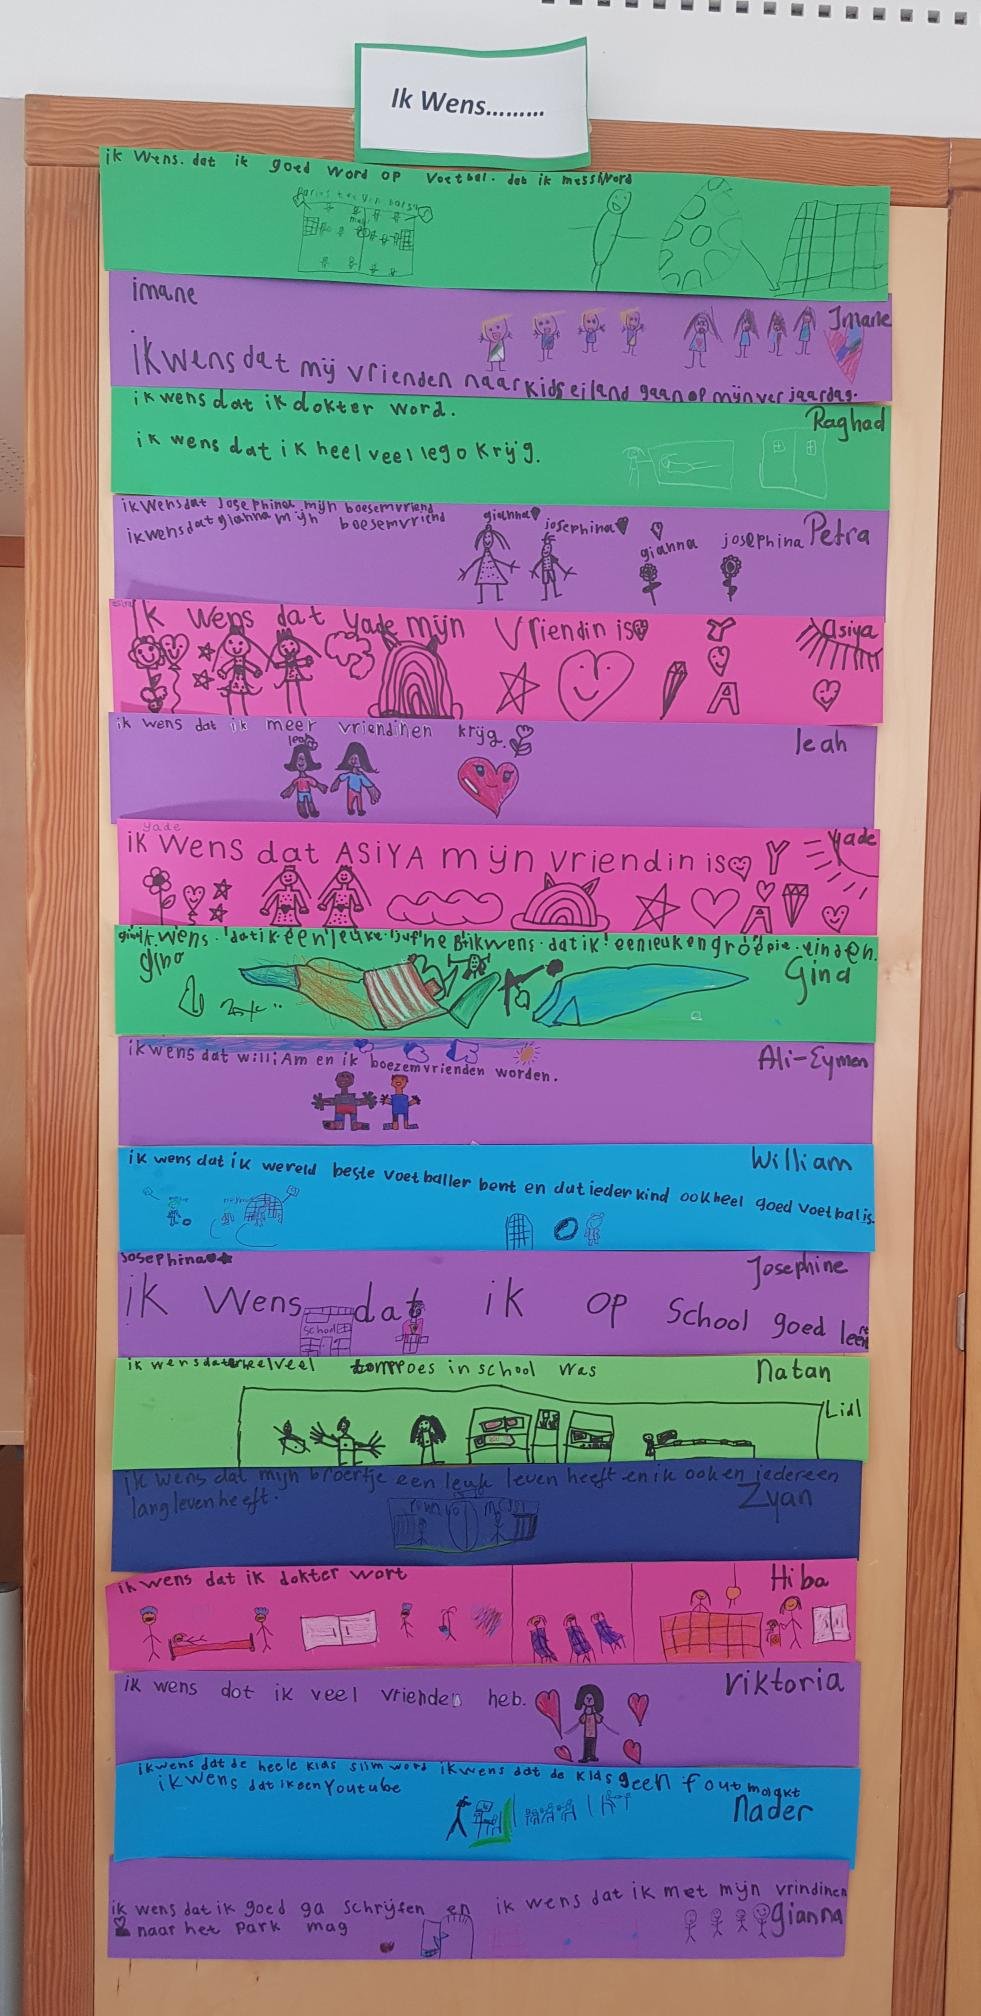 Ik Wens.........
ik Wens. dat ik goed word op Voetbal. dat ik messi Word
imane
Imane
ik wens dat mijn vrienden naar kids eiland gaan op mijn ver jaardag.
ik wens dat ik dokter word.
Raghad
ik wens dat ik heel veel lego krijg.
ik wens dat Josephina mijn boesemvriend
ik wens dat gianna mijn boesemvriend
gianna
josephina
gianna
josephina
Petra
ik wens dat Yade mijn Vriendin is
Asiya
Y
A
ik wens dat ik meer vriendinen krijg.
leah
leah
yade
ik wens dat ASiYA mijn vriendin is Y
Yade
A
gina ik wens. dat ik een leuke juf
ik wens. dat ik
gina
Gina
ik wens dat williAm en ik boezemvrienden worden.
Ali-Eymen
ik wens dat ik wereld beste voetballer bent en dat ieder kind ook heel goed voetbal is.
William
Josephina
Josephine
ik Wens dat ik op School goed leer
School
ik wens dat er heel veel tompoes in school was
Natan
Lidl
ik wens dat mijn broertje een leuk leven heeft en ik ook en iedereen
lang leven heeft.
Zyan
ik wens dat ik dokter wort
Hiba
ik wens dat ik veel vrienden heb.
Viktoria
ik wens dat de heele klas slim word ik wens dat de klas geen fout maakt
ik wens dat ik een Youtube
Nader
ik wens dat ik goed ga schrijfen en ik wens dat ik met mijn vrindinen
naar het park mag
gianna